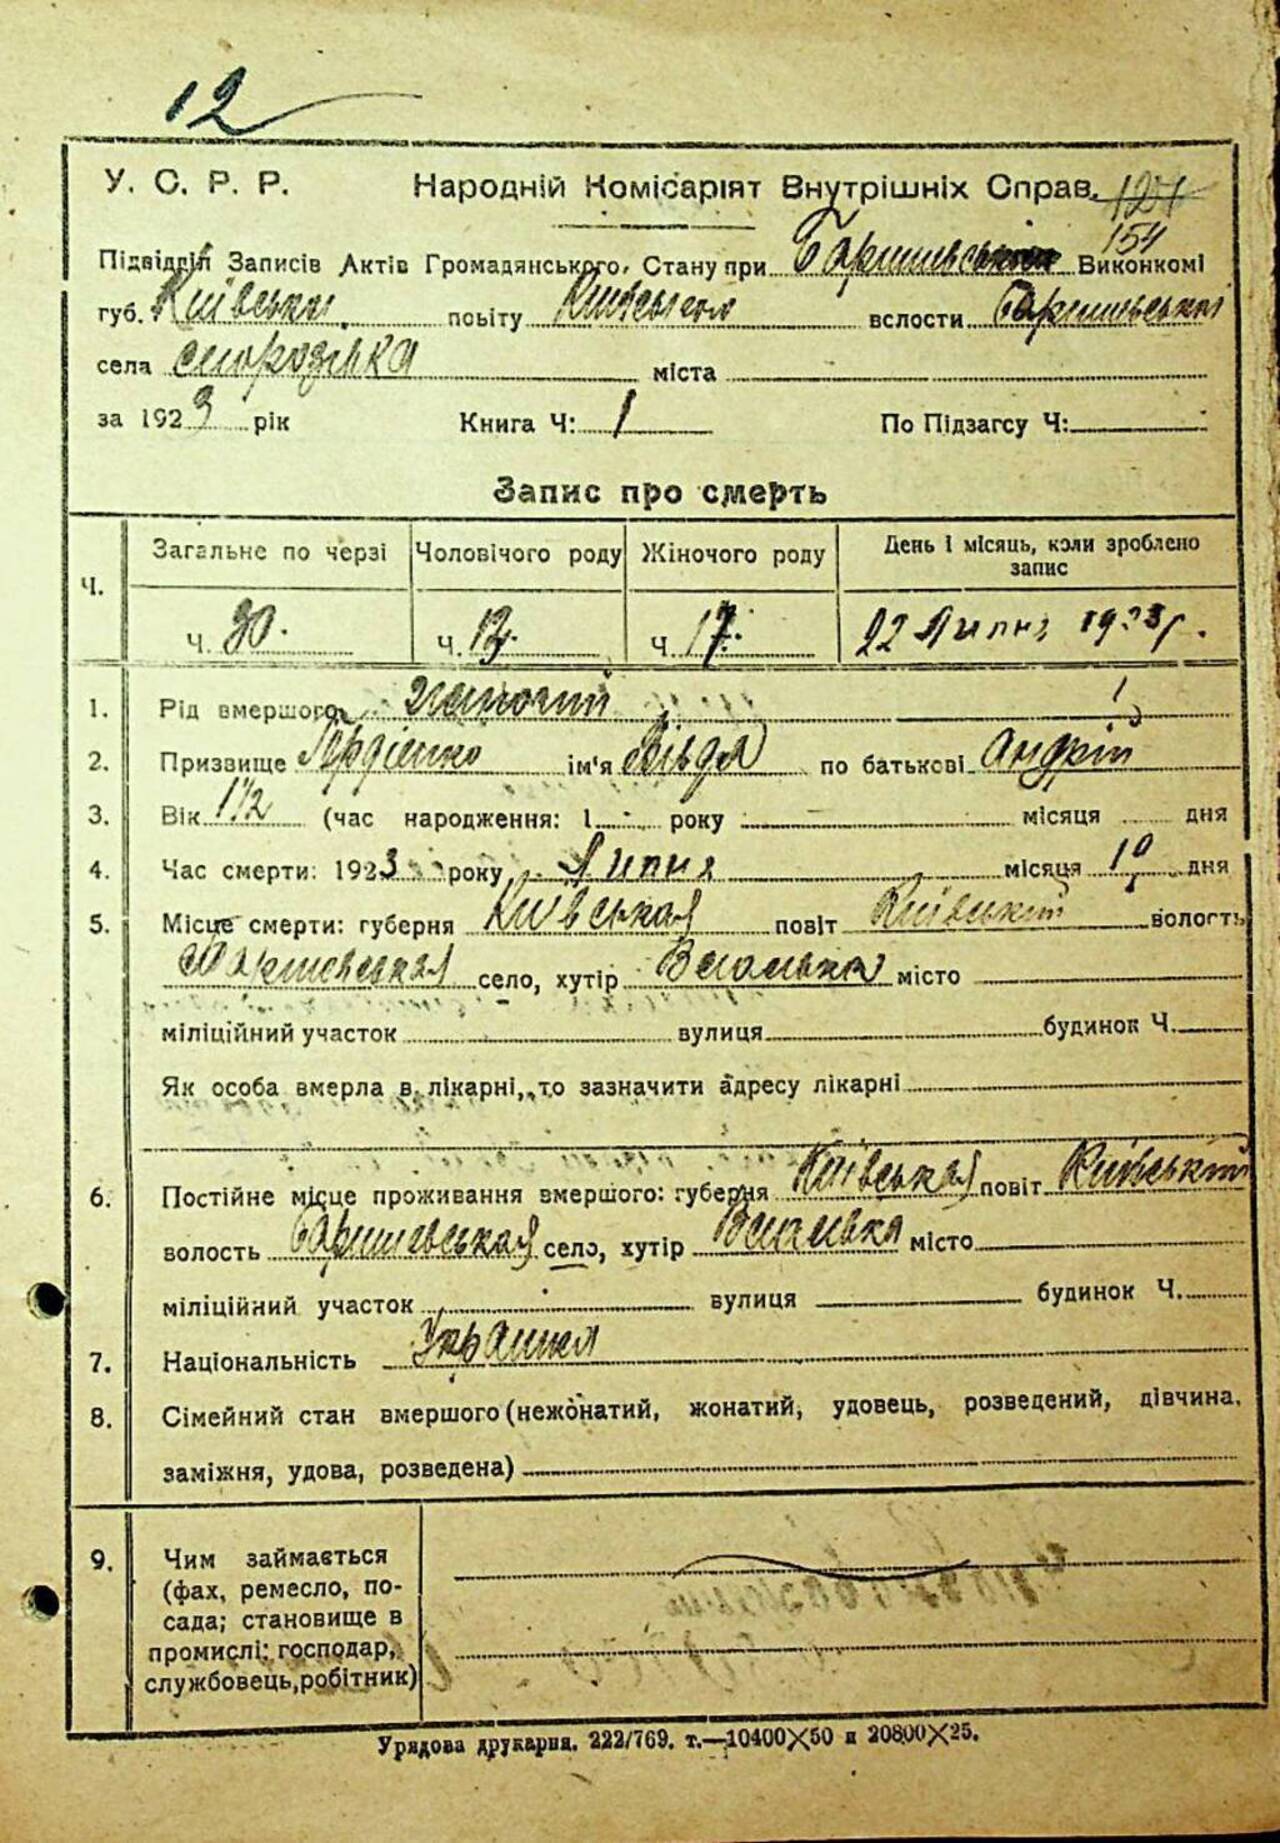 12
У. С. Р. Р. Народній Комісаріят Внутрішніх Справ. 121
154
Підвідділ Записів Актів Громадянського Стану при Виконкомі
губ. Київська повіту волости
села міста
за 1923 рік Книга Ч: 1 По Підзагсу Ч:
Запис про смерть
Ч. Загальне по черзі Чоловічого роду Жіночого роду День і місяць, коли зроблено запис
Ч. 30. Ч. 13. Ч. 17. 22 Липня 1923 р.
1. Рід вмершого
2. Призвище Гордієнко ім'я по батькові Андрій
3. Вік 1 1/2 (час народження: 1 року місяця дня
4. Час смерти: 1923 року Липня місяця дня
5. Місце смерти: губерня Київськая повіт Київський волость
Баришевськая село, хутір місто
міліційний участок вулиця будинок Ч.
Як особа вмерла в лікарні, то зазначити адресу лікарні
6. Постійне місце проживання вмершого: губерня Київськая повіт Київський
волость Баришевськая село, хутір місто
міліційний участок вулиця будинок Ч.
7. Національність
8. Сімейний стан вмершого (нежонатий, жонатий, удовець, розведений, дівчина,
заміжня, удова, розведена)
9. Чим займається
(фах, ремесло, по-
сада; становище в
промислі: господар,
службовець, робітник)
Урядова друкарня. 222/769. т.—10400×50 и 20800×25.